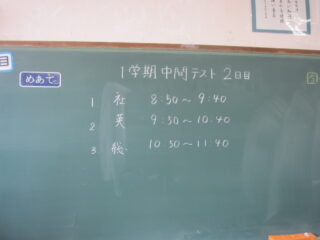 1学期中間テスト 2日目
めあて
1 社 8:50～9:40
2 英 9:50～10:40
3 総 10:50～11:40